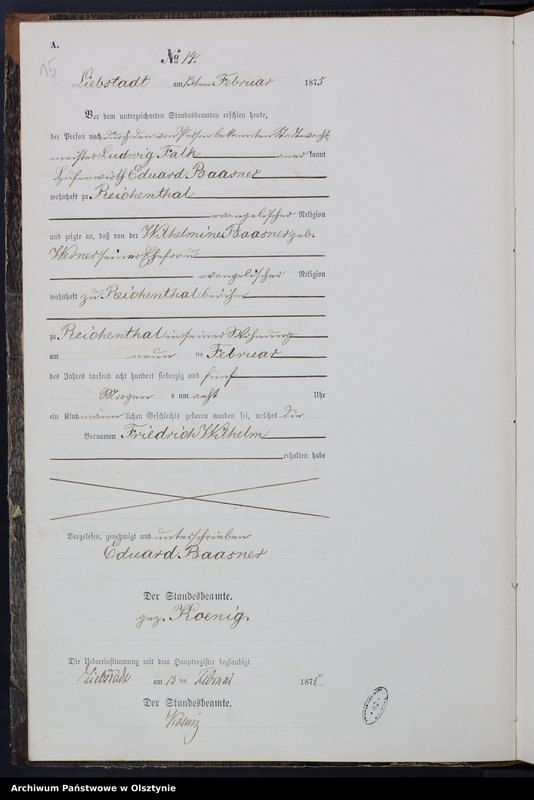 A.
15
No 14.
Liebstadt am 13ten Februar 1875
Vor dem unterzeichneten Standesbeamten erschien heute,
der Person nach durch den von Person bekannten Stadtwacht,
meister Ludwig Falk anerkannt
Hufenwirth Eduard Baasner
wohnhaft zu Reichenthal
evangelischer Religion
und zeigte an, daß von der Wilhelmine Baasner geb.
Werner seiner Ehefrau
evangelischer Religion
wohnhaft zu Reichenthal bei ihm
zu Reichenthal in seiner Wohnung
am neun ten Februar
des Jahres tausend acht hundert siebenzig und fünf
Morgens um acht Uhr
ein Kind männlichen Geschlechts geboren worden sei, welches die
Vornamen Friedrich Wilhelm
erhalten habe
Vorgelesen, genehmigt und unterschrieben
Eduard Baasner
Der Standesbeamte.
gez. Koenig.
Die Uebereinstimmung mit dem Hauptregister beglaubigt
Liebstadt am 13 ten Februar 1875
Der Standesbeamte.
Koenig
Archiwum Państwowe w Olsztynie